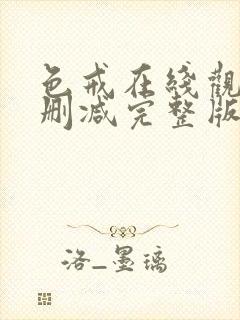 色戒在线觀
删减完整版
洛_墨璃